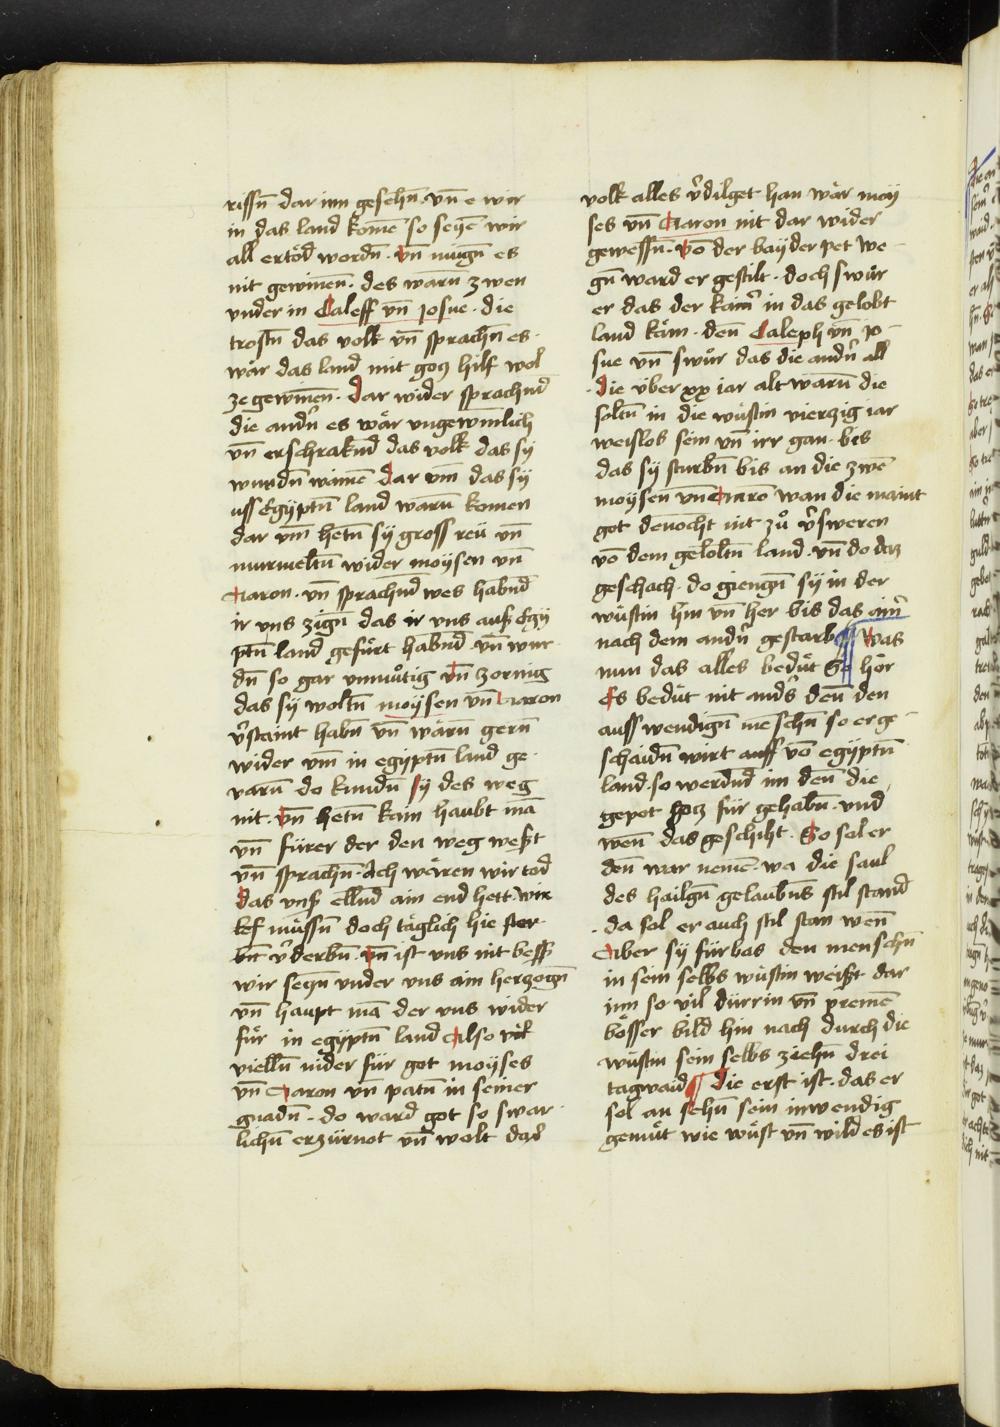 rissn̄ dar inn gesehn̄ · vn̄ e wir
in das land komē so seyē wir
all ertöd wordn̄ · vn̄ mügn̄ es
nit gewinnē · des warn̄ zwen
vnder in Caleff vn̄ Josue · die
trostn̄ das volk vn̄ sprachn̄ es
wär das land mit gotz hilf wol
ze gewinnē · dar wider sprachnd
die andn̄ es wär vngewinlich
vn̄ erschraknd das volk das sy
wurdn̄ wainē dar vm̄ das sy
uss Egyptn̄ land warn̄ komen
dar vm̄ hetn̄ sy gross reü vn̄
murmeltn̄ wider moysen vn̄
Aaron · vn̄ sprachnd wes habnd
ir vns zign̄ das ir vns auß Egy
ptn̄ land gefürt habnd · vn̄ wur
dn̄ so gar vnmůtig vn̄ zornig
das sy woltn̄ moysen vn̄ Aaron
v̄staint habn̄ vn̄ wärn̄ gern̄
wider vm̄ in egyptn̄ land ge
varn̄ do kundn̄ sy des weg
nit · vn̄ hetn̄ kain haubt mā
vn̄ fürer der den weg weßt
vn̄ sprachn̄ · Ach wären wir tod
das vnß ellnd ain end hett · wir
müssn̄ doch täglich hie ster
bn̄ v̄derbn̄ · vn̄ ist vns nit besß
wir seczn̄ vnder vns ain herzogn̄
vn̄ haupt mā der vns wider
für in egyptn̄ land Also
vielln̄ nider für got moyses
vn̄ Aaron vn̄ patn̄ in seiner
gnadn̄ · do ward got so swar
lichn̄ erzürnot vn̄ wolt das
volk alles v̄dilget han wär moy
ses vn̄ Aaron nit dar wider
gewessn̄ · vō der bayder pet we
gn̄ ward er gestilt · doch swůr
er das der kainr̄ in das gelobt
land käm · den̄ Caleph vn̄ Jo
sue vn̄ swůr das die andn̄ all
die über xx iar alt warn̄ die
soltn̄ in die wüstin vierzig iar
weislos sein vn̄ irr gan · bis
das sy sturbn̄ bis an die zwē
moysen vn̄ Aarō wan die maint
got denocht nit zů v̄sweren
vō dem gelobtn̄ land · vn̄ do daz
geschach · do giengn̄ sy in der
wüstin hin vn̄ her bis das ainr̄
nach dem andn̄ gestarb Was
nun das alles bedüt So hör
Es bedüt nit andr̄s den̄ den
auss wendign̄ menschn̄ so er ge
schaidn̄ wirt auss vō egyptn̄
land · so werdnd im den̄ die
gepot gotz für gehabn̄ · vnd
wen̄ das geschiht · So sol er
den̄ war nemē · wa die saul
des hailgn̄ gelaubn̄s stil stand
da sol er auch stil stan wen̄
Aber sy fürbas den menschn̄
in sein selbs wüstin weißt dar
inn so vil dürrin vn̄ premē
bosser bild hin nach durch die
wüstin sein selbs ziehn̄ drei
tagwaid Die erst ist · das er
sol an sehn̄ sein inwendig
gemüt wie wüst vn̄ wild es ist